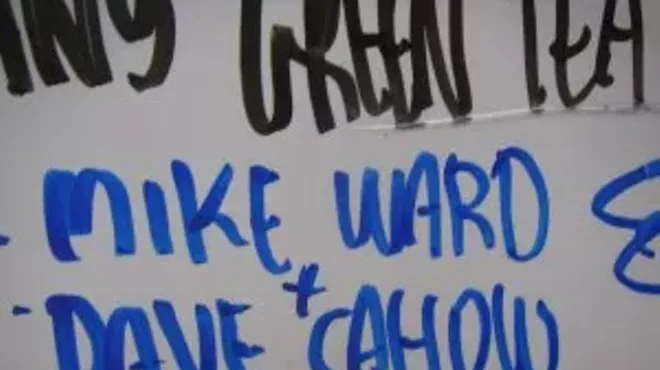 GREEN TEA
- MIKE WARD
+
- DAVE CAHOW